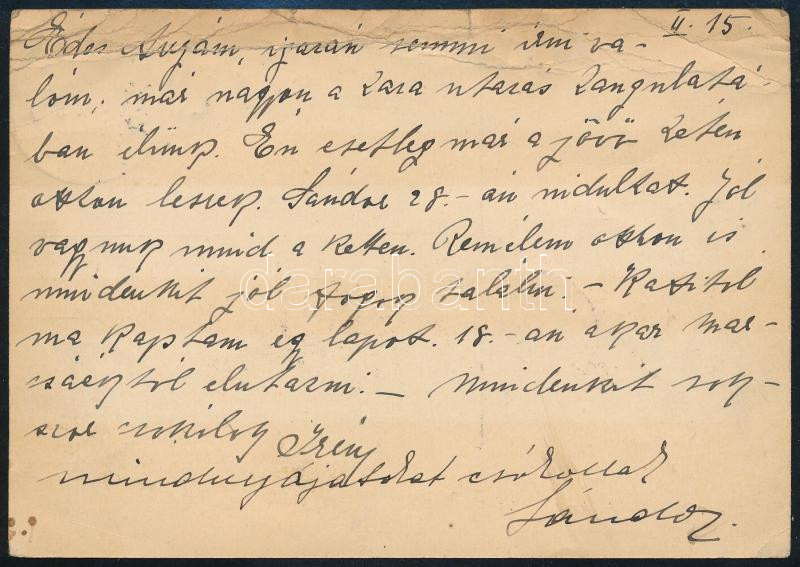 II. 15.
Édes Anyám, igazán semmi írni va-
lóm, már nagyon a haza utazás hangulatá-
ban élünk. Én esetleg már a jövő héten
otthon leszek. Sándor 28.-án indulhat. Jól
vagyunk mind a ketten. Remélem otthon is
mindenkit jól fogok találni. – Katitól
ma kaptam egy lapot. 18.-án akar
elutazni. – Mindenkit sok-
szor csókolok Irén
mindnyájatokat csókollak
Sándor.
darabanth